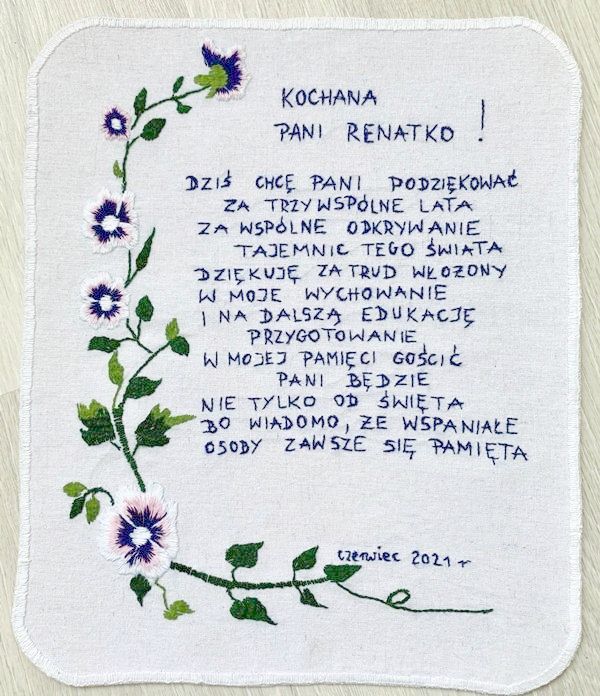 KOCHANA
PANI RENATKO !
DZIŚ CHCĘ PANI PODZIĘKOWAĆ
ZA TRZY WSPÓLNE LATA
ZA WSPÓLNE ODKRYWANIE
TAJEMNIC TEGO ŚWIATA
DZIĘKUJĘ ZA TRUD WŁOŻONY
W MOJE WYCHOWANIE
I NA DALSZĄ EDUKACJĘ
PRZYGOTOWANIE
W MOJEJ PAMIĘCI GOŚCIĆ
PANI BĘDZIE
NIE TYLKO OD ŚWIĘTA
BO WIADOMO, ŻE WSPANIAŁE
OSOBY ZAWSZE SIĘ PAMIĘTA
czerwiec 2021 r